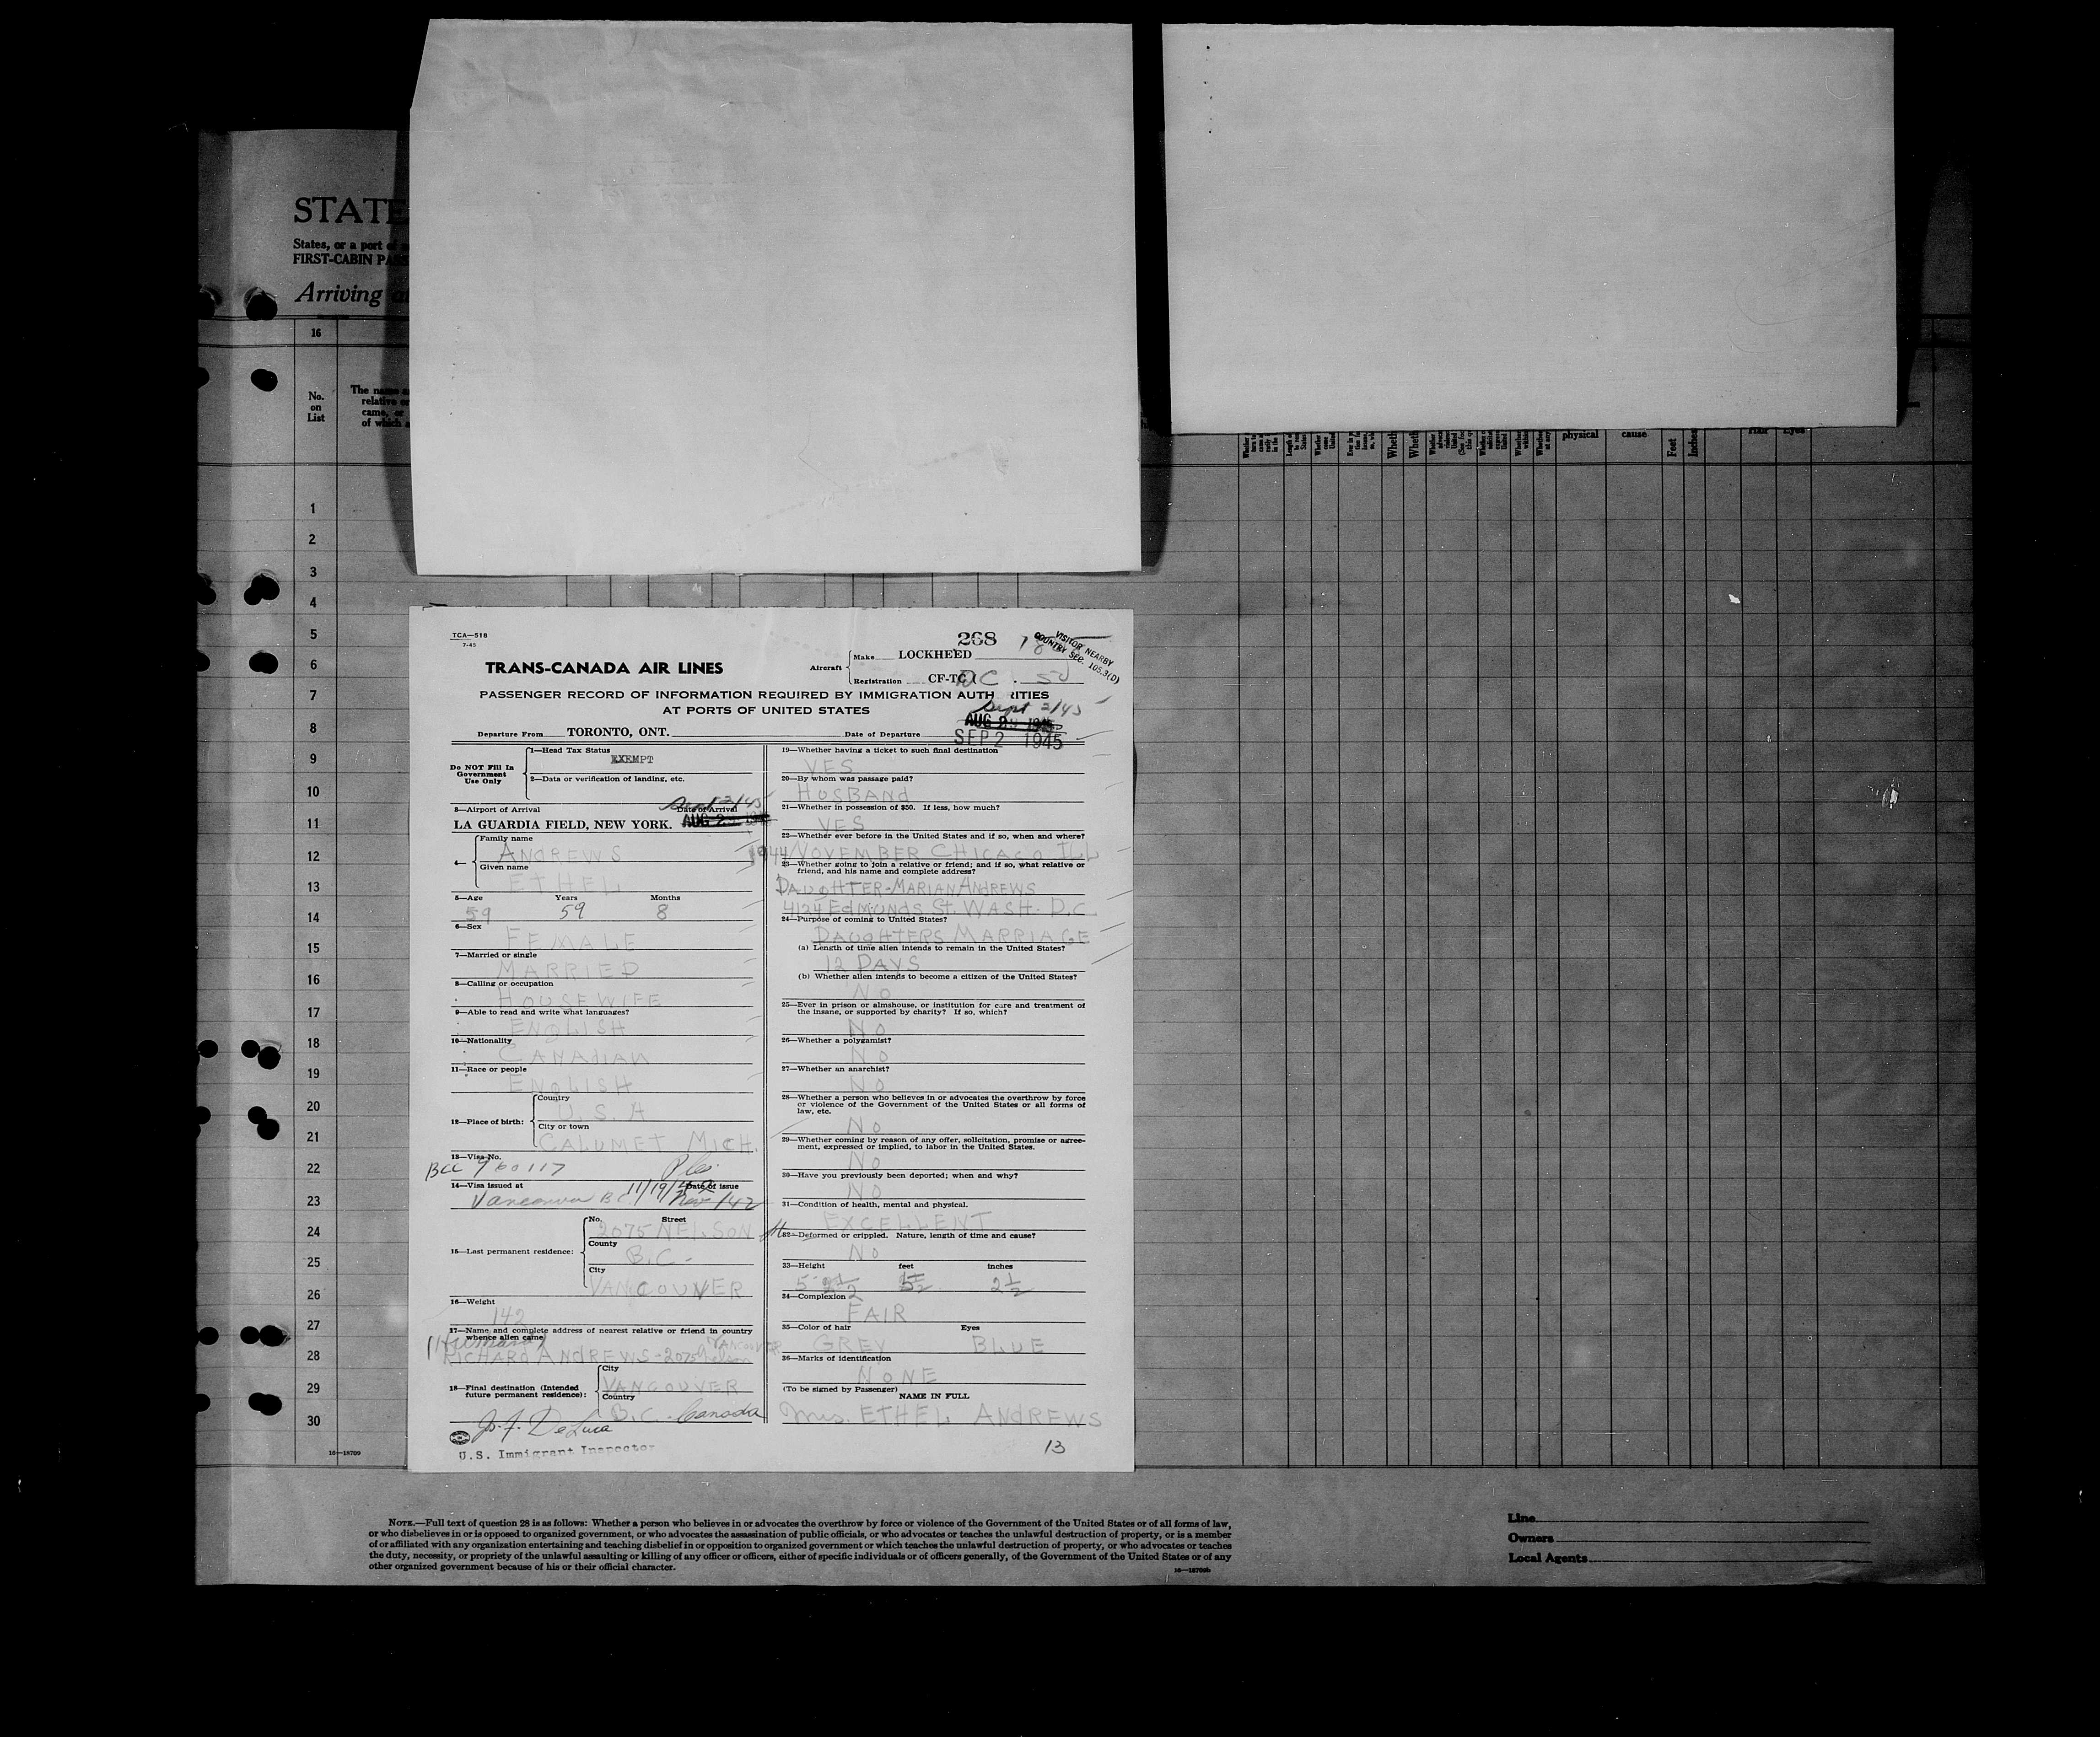 STATE
States, or a port of
FIRST-CABIN PAS
Arriving
16
No.
on
List
The name
relative or
came, or
of which a
physical
cause
Feet
Inches
Hair
Eyes
1
2
3
4
5
6
7
8
9
10
11
12
13
14
15
16
17
18
19
20
21
22
23
24
25
26
27
28
29
30
16—18709
TCA—518
7-45
268
VISITOR NEARBY
COUNTRY SEC. 105.3(D)
TRANS-CANADA AIR LINES
Aircraft
Make LOCKHEED
Registration CF-TC
PASSENGER RECORD OF INFORMATION REQUIRED BY IMMIGRATION AUTH RITIES
AT PORTS OF UNITED STATES
Sept 2/45
AUG 29 1945
Departure From TORONTO, ONT. Date of Departure SEP 2 1945
Do NOT Fill In
Government
Use Only
1—Head Tax Status
EXEMPT
2—Data or verification of landing, etc.
3—Airport of Arrival Date of Arrival
Sept 2/45
LA GUARDIA FIELD, NEW YORK.
4—
Family name
ANDREWS
Given name
ETHEL
5—Age Years Months
59 59 8
6—Sex
FEMALE
7—Married or single
MARRIED
8—Calling or occupation
HOUSEWIFE
9—Able to read and write what languages?
ENGLISH
10—Nationality
CANADIAN
11—Race or people
ENGLISH
12—Place of birth:
Country
U.S.A
City or town
CALUMET MICH.
13—Visa No.
BCC 960117
14—Visa issued at Date of issue
Vancouver BC 11/19/42
15—Last permanent residence:
No. Street
2075 NELSON St.
County
B.C.-
City
VANCOUVER
16—Weight
142
17—Name and complete address of nearest relative or friend in country
whence alien came
(Husband)
RICHARD ANDREWS-2075 Nelson VANCOUVER
18—Final destination (Intended
future permanent residence):
City
VANCOUVER
Country
B.C. Canada
U.S. Immigrant Inspector
19—Whether having a ticket to such final destination
YES
20—By whom was passage paid?
HUSBAND
21—Whether in possession of $50. If less, how much?
YES
22—Whether ever before in the United States and if so, when and where?
1944 NOVEMBER CHICAGO ILL
23—Whether going to join a relative or friend; and if so, what relative or
friend, and his name and complete address?
DAUGHTER-MARIAN ANDREWS
4124 EDMUNDS St. WASH. D.C.
24—Purpose of coming to United States?
DAUGHTERS MARRIAGE
(a) Length of time alien intends to remain in the United States?
12 DAYS
(b) Whether alien intends to become a citizen of the United States?
NO
25—Ever in prison or almshouse, or institution for care and treatment of
the insane, or supported by charity? If so, which?
NO
26—Whether a polygamist?
NO
27—Whether an anarchist?
NO
28—Whether a person who believes in or advocates the overthrow by force
or violence of the Government of the United States or all forms of
law, etc.
NO
29—Whether coming by reason of any offer, solicitation, promise or agree-
ment, expressed or implied, to labor in the United States.
NO
30—Have you previously been deported; when and why?
NO
31—Condition of health, mental and physical.
EXCELLENT
32—Deformed or crippled. Nature, length of time and cause?
NO
33—Height feet inches
5 2½
34—Complexion
FAIR
35—Color of hair Eyes
GREY BLUE
36—Marks of identification
NONE
(To be signed by Passenger)
NAME IN FULL
Mrs. ETHEL ANDREWS
13
NOTE.—Full text of question 28 is as follows: Whether a person who believes in or advocates the overthrow by force or violence of the Government of the United States or of all forms of law,
or who disbelieves in or is opposed to organized government, or who advocates the assassination of public officials, or who advocates or teaches the unlawful destruction of property, or is a member
of or affiliated with any organization entertaining and teaching disbelief in or opposition to organized government or which teaches the unlawful destruction of property, or who advocates or teaches
the duty, necessity, or propriety of the unlawful assaulting or killing of any officer or officers, either of specific individuals or of officers generally, of the Government of the United States or of any
other organized government because of his or their official character.
16—18709b
Line
Owners
Local Agents